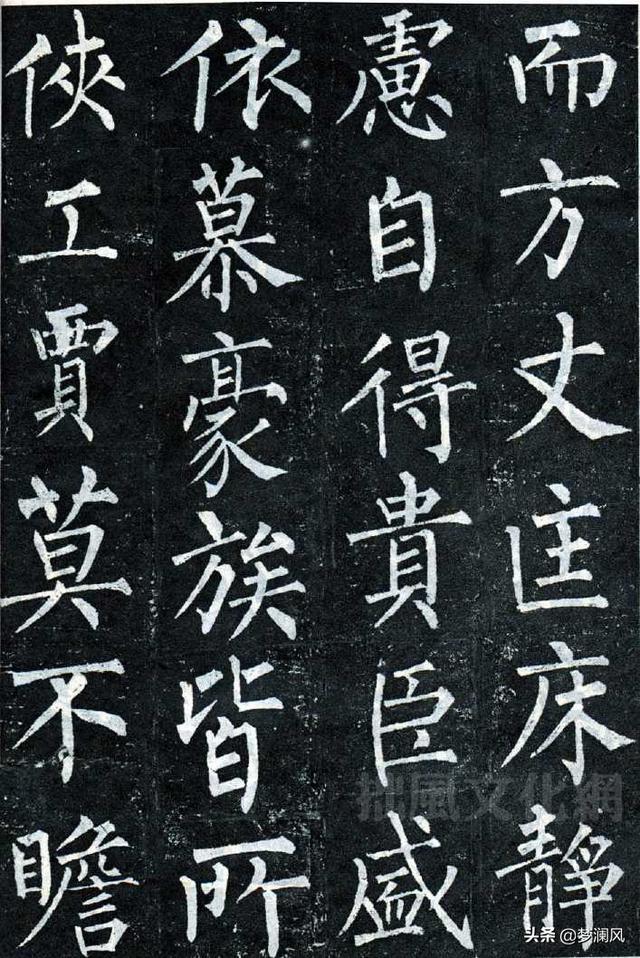 而方丈匡床静
慮自得貴臣盛
依慕豪族皆所
俠工賈莫不瞻
拙風文化網
头条 @梦澜风